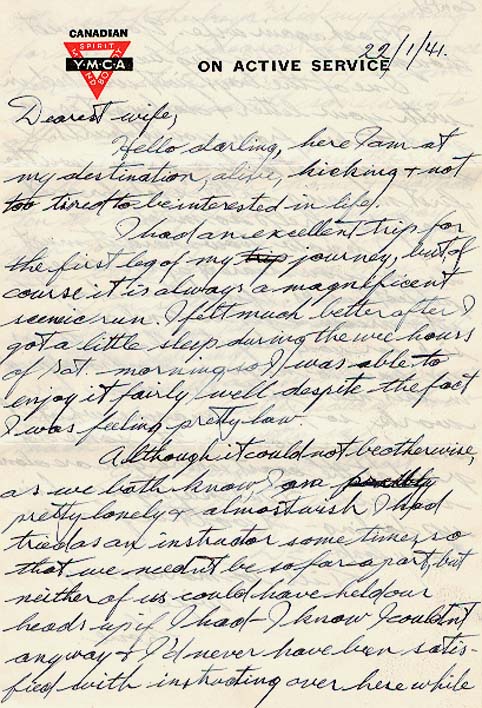 CANADIAN
SPIRIT
Y·M·C·A
MIND BODY
ON ACTIVE SERVICE
22/1/41.
Dearest wife,
Hello darling, here I am at
my destination, alive, kicking & not
too tired to be interested in life.
I had an excellent trip for
the first leg of my trip journey, but, of
course it is always a magnificent
scenic run. I felt much better after I
got a little sleep during the wee hours
of Sat. morning so I was able to
enjoy it fairly well despite the fact
I was feeling pretty low.
Although it could not be otherwise,
as we both know, I am possibly
pretty lonely & almost wish I had
tried as an instructor some time, so
that we needn't be so far apart, but
neither of us could have held our
heads up if I had - I know I couldn't
anyway & I'd never have been satis-
fied with instructing over here while